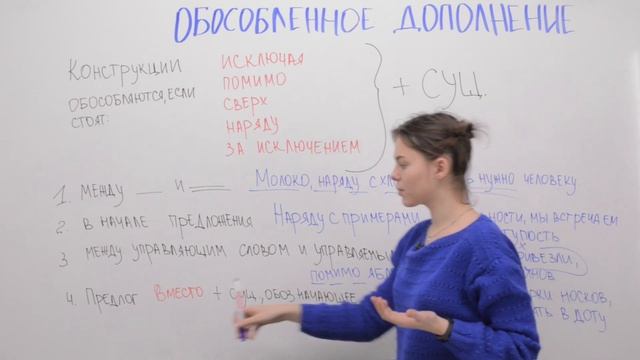 ОБОСОБЛЕННОЕ ДОПОЛНЕНИЕ
КОНСТРУКЦИИ
ОБОСОБЛЯЮТСЯ, ЕСЛИ
СТОЯТ:
ИСКЛЮЧАЯ
ПОМИМО
СВЕРХ
НАРЯДУ
ЗА ИСКЛЮЧЕНИЕМ
+ СУЩ.
1. МЕЖДУ ___ И ___ МОЛОКО, НАРЯДУ С НУЖНО ЧЕЛОВЕКУ
2. В НАЧАЛЕ ПРЕДЛОЖЕНИЯ НАРЯДУ С ПРИМЕРАМИ МЫ ВСТРЕЧАЕМ
3 МЕЖДУ УПРАВЛЯЮЩИМ СЛОВОМ И
ПОМИМО
4. ПРЕДЛОГ ВМЕСТО + СУЩ., ОБОЗНАЧАЮЩЕЕ НОСКОВ,
В ДОТУ